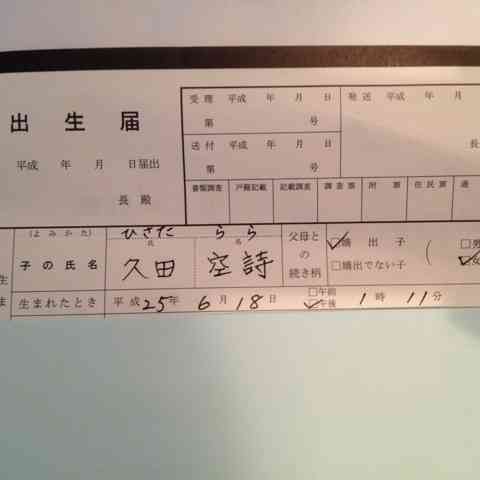 出生届
平成　年　月　日届出
長 殿
受理　平成　年　月　日
第　号
送付　平成　年　月　日
第　号
発送　平成　年　月
長
書類調査　戸籍記載　記載調査　調査票　附票　住民票　通
生ま
(よみかた)　ひさだ　らら
子の氏名　氏　久田　名　空詩
父母との続き柄　☑嫡出子　□嫡出でない子　(　□男　☑女
生まれたとき　平成25年6月18日　□午前　☑午後　1時11分